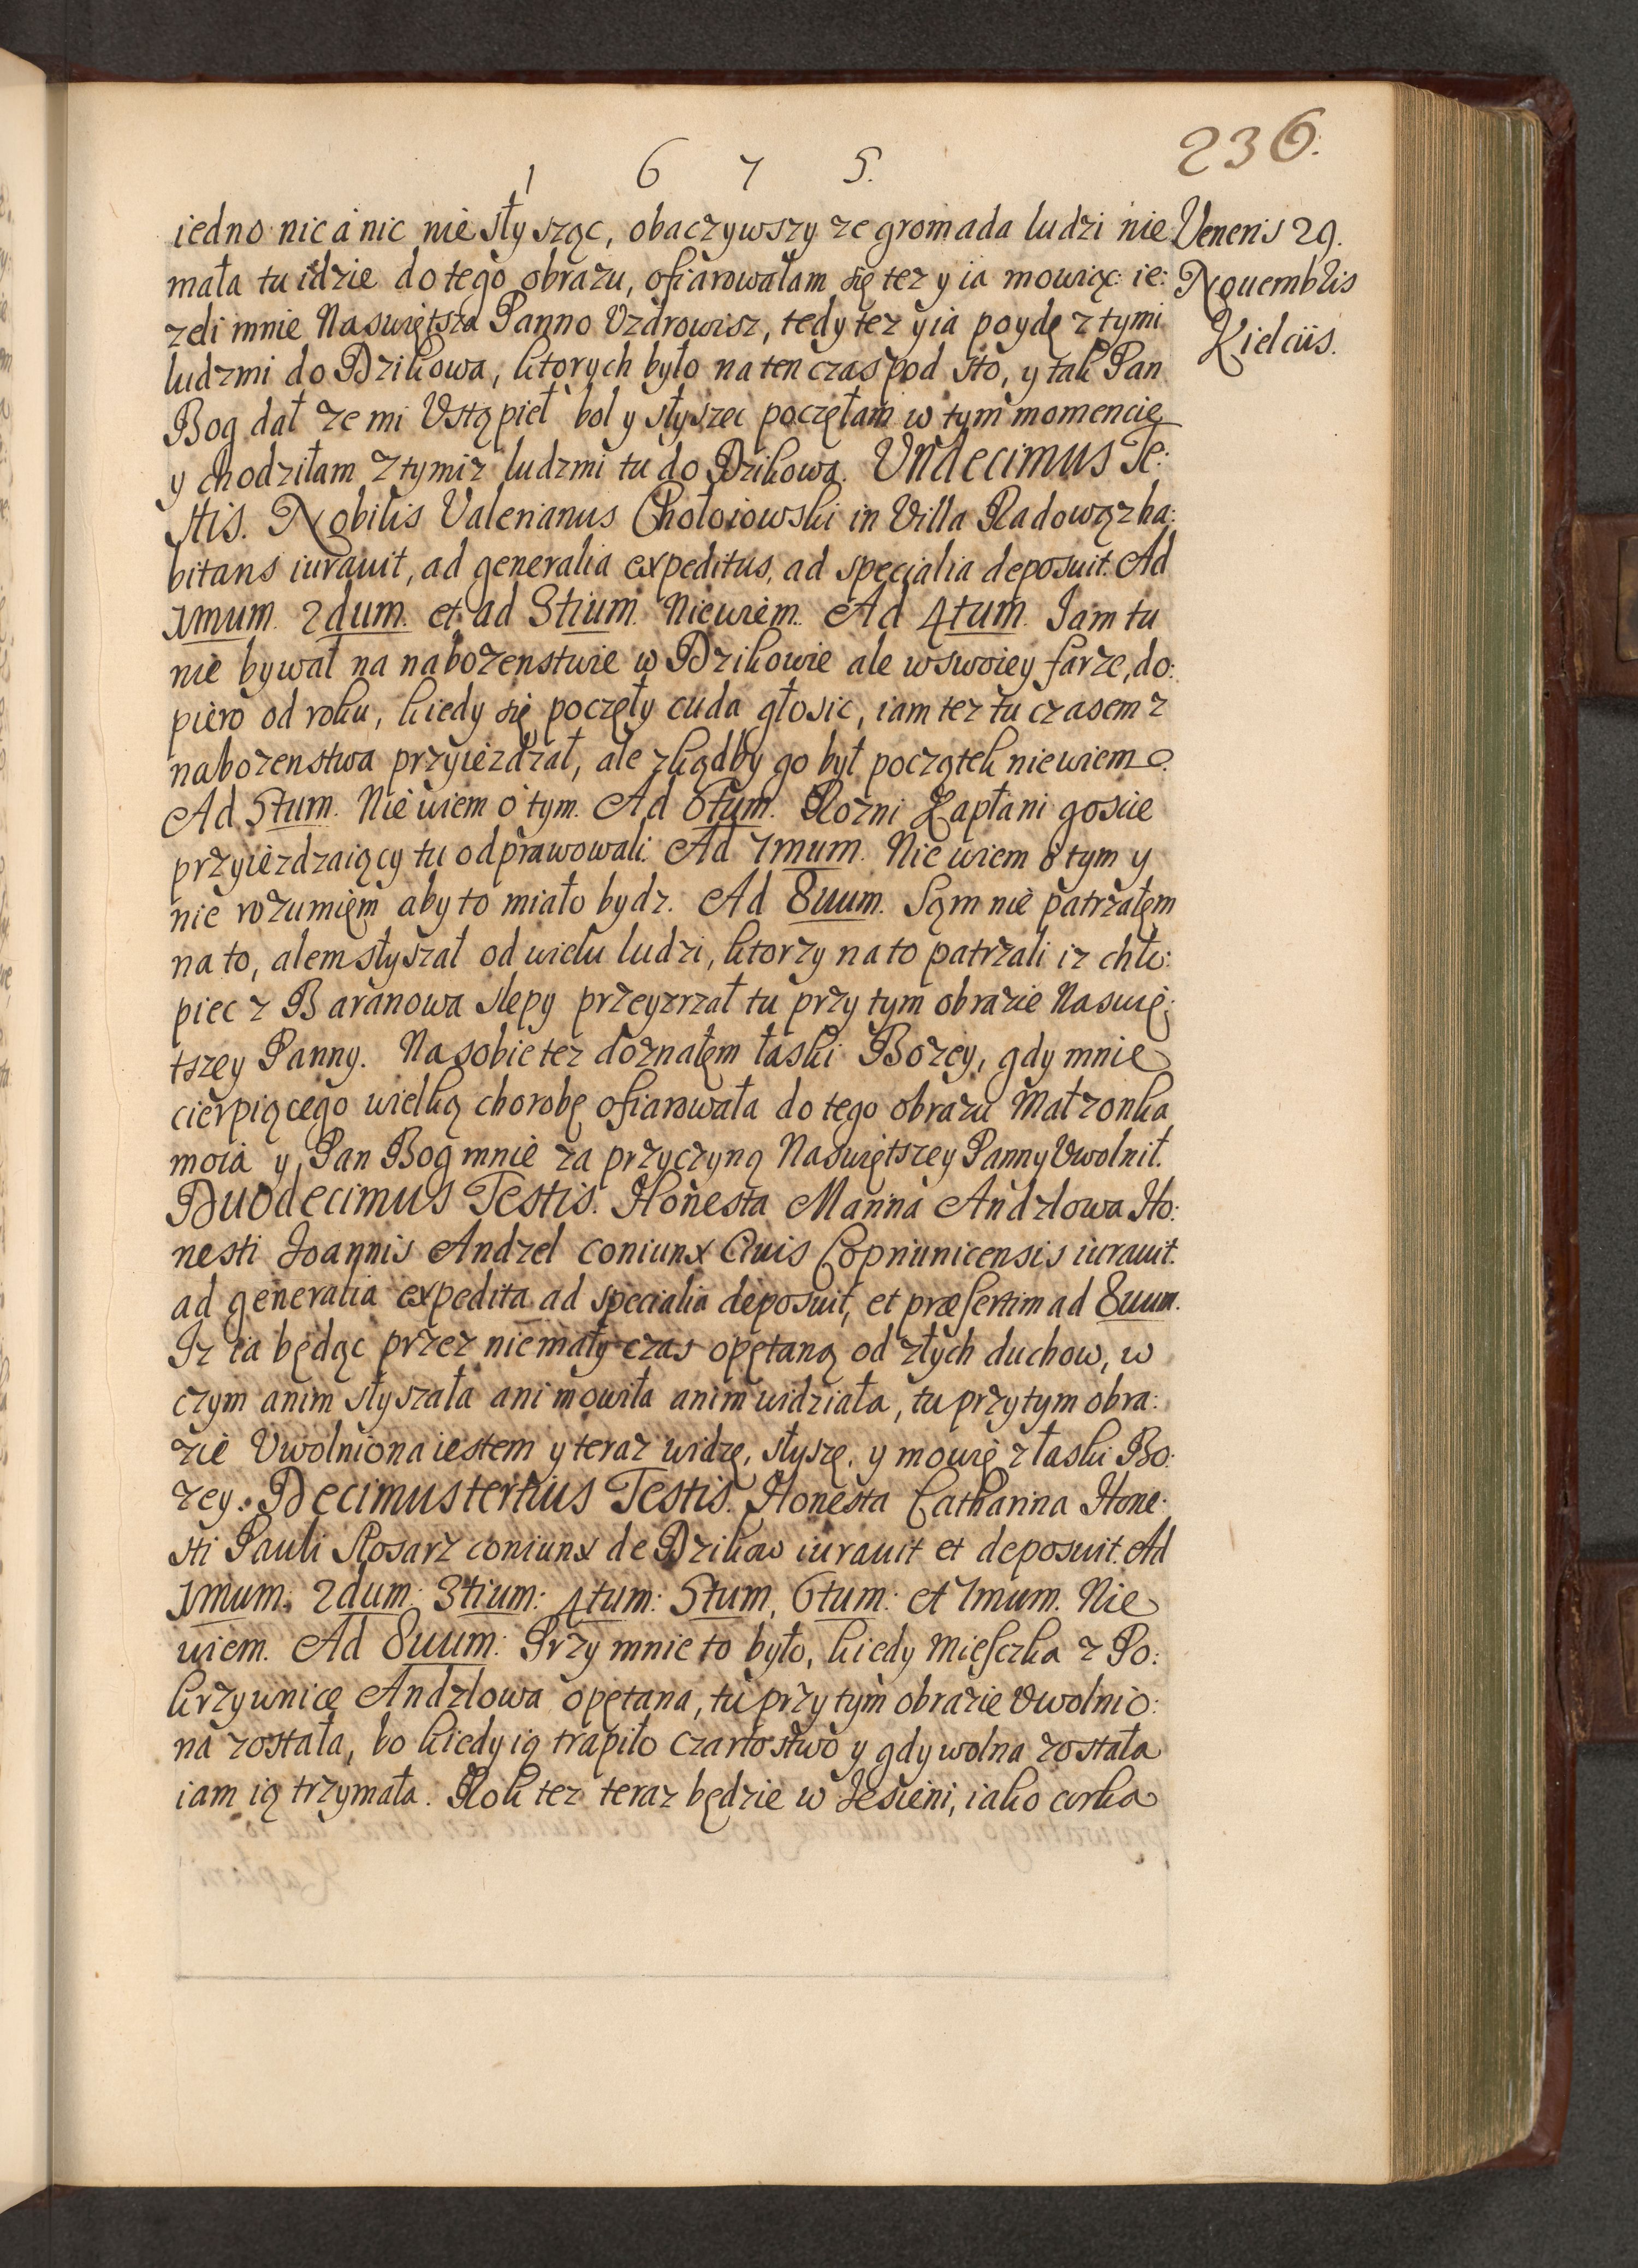 236.
1 6 7 5.
iedno nic á nic nie słysząc, obaczywszy ze gromada ludzi nie
mała tu idzie do tego obrazu, ofiarowałam się tez y ia mowiąc: ie:
zeli mnie Naswiętsza Panno Vzdrowisz, tedy tez y ia poydę z tymi
ludzmi do Dzikowa, ktorych było na ten czas pod sto, y tak Pan
Bog dał ze mi Vstąpieł bol y słyszec poczęłam w tym momencie
y chodziłam z tymiz ludzmi tu do Dzikowa. Vndecimus Te:
stis. Nobilis Valerianus Chołoiowski in Villa Radowąz ha:
bitans iurauit, ad generalia expeditus, ad specialia deposuit. Ad
1mum. 2dum. et ad 3tium. Niewiem. Ad 4tum. Iam tu
nie bywał na nabozenstwie w Dzikowie ale w swoiey farze, do:
piero od roku, kiedy się poczęły cuda głosic, iam tez tu czasem z
nabozenstwa przyiezdzał, ale zkądby go był początek niewiem.
Ad 5tum. Nie wiem o tym. Ad 6tum. Rozni Kapłani goscie
przyiezdzaiący tu odprawowali. Ad 7mum. Nie wiem o tym y
nie rozumięm aby to miało bydz. Ad 8uum. Sąm nie patrzałęm
na to, alem słyszał od wielu ludzi, ktorzy na to patrzali iz chło:
piec z Baranowa slepy przeyzrzał tu przy tym obrazie Naswię:
tszey Panny. Na sobie tez doznałęm łaski Bozey, gdy mnie
cierpiącego wielką chorobę ofiarowała do tego obrazu Małzonka
moia y Pan Bog mnie za przyczyną Naswiętszey Panny Vwolnił.
Duodecimus Testis. Honesta Marina Andzlowa Ho:
nesti Joannis Andzel coniunx Ciuis Copriunicensis iurauit.
ad generalia expedita ad specialia deposuit, et præsertim ad 8uum.
Iz ia będąc przez niemały czas opętaną od złych duchow, w
czym anim słyszała ani mowiła anim widziała, tu przy tym obra:
zie Vwolniona iestem y teraz widzę, słyszę, y mowię z łaski Bo:
zey. Decimustertius Testis. Honesta Catharina Hone:
sti Pauli Kosarz coniunx de Dzikow iurauit et deposuit. Ad
1mum: 2dum: 3tium: 4tum: 5tum, 6tum: et 7mum. Nie
wiem. Ad 8uum: Przy mnie to było, kiedy Miesczka z Po:
krzywnice Andzlowa opętana, tu przy tym obrazie Vwolnio:
na została, bo kiedy ią trapiło czartostwo y gdy wolna została
iam ią trzymała. Rok tez teraz będzie w Jesieni, iako curka
Veneris 29.
Nouembris
Kielciis.